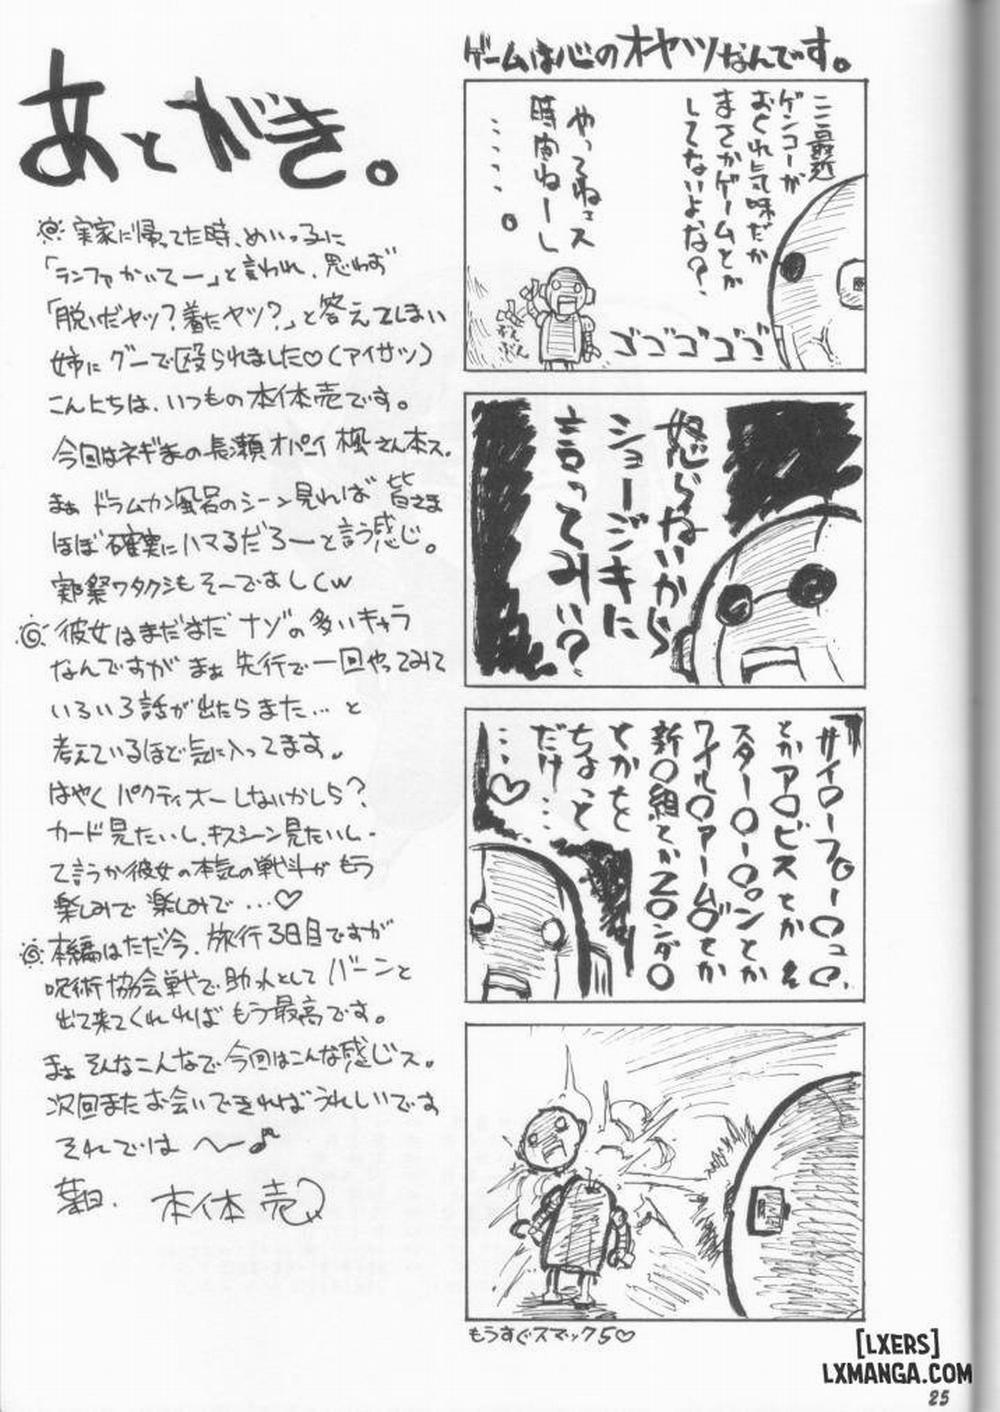 ゲームは心のオヤツなんです。
ここ最近
ゲンコーが
おくれ気味だが
まさかゲームとか
してないよな?
やってねェス
時間ねーし
・・・・。
ゴゴゴゴゴ
怒らねいから
ショージキに
言ってみぃ?
サイ〇ーフ〇ー〇ュ〇、
とかア〇ビスとか
スター〇ー〇ンとか
ワイル〇アームズとか
新〇組とかZ〇ンダ〇
とかをちょっと
だけ…
…♡
もうすぐスマック5♡
あとがき。
実家に帰ってた時、めいっ子に
「ランファかいてー」と言われ、思わず
「脱いだヤツ?着たヤツ?」と答えてしまい
姉にグーで殴られました♡(アイサツ)
こんにちは、いつもの本体売です。
今回はネギまの長瀬オパーイ楓さん本ス。
まぁドラムカン風呂のシーン見れば皆さま
ほぼ確実にハマるだろーと言う感じ。
実際ワタクシもそーですしくw
彼女はまだまだナゾの多いキャラ
なんですが まぁ先行で一回やってみて
いろいろ話が出たらまた…と
考えているほど気に入ってます。
はやくパクティオーしないかしら?
カード見たいし、キスシーン見たいし・
て言うか彼女の本気の戦斗がもう
楽しみで楽しみで…♡
本編はただ今、旅行3日目ですが
呪術協会戦で助っ人としてバーンと
出て来てくれればもう最高です。
まぁそんなこんなで今回はこんな感じス。
次回またお会いできればうれしいです
それでは 〜♪
本体売
[LXERS]
LXMANGA.COM
25